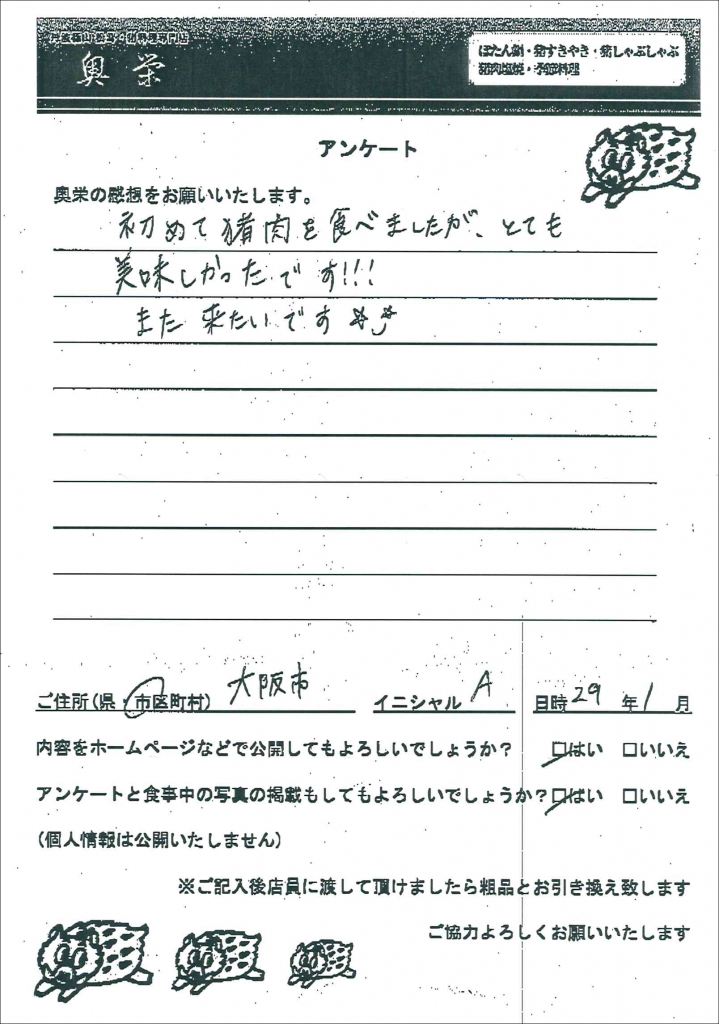 丹波篠山 松茸・猪料理専門店
奥栄
ぼたん鍋・猪すきやき・猪しゃぶしゃぶ
猪肉塩焼・季節料理
アンケート
奥栄の感想をお願いいたします。
初めて猪肉を食べましたが、とても
美味しかったです!!!
また来たいです
ご住所(県・市区町村) 大阪市 イニシャル A 日時 29 年 1 月
内容をホームページなどで公開してもよろしいでしょうか? □はい □いいえ
アンケートと食事中の写真の掲載もしてもよろしいでしょうか?□はい □いいえ
(個人情報は公開いたしません)
※ご記入後店員に渡して頂けましたら粗品とお引き換え致します
ご協力よろしくお願いいたします